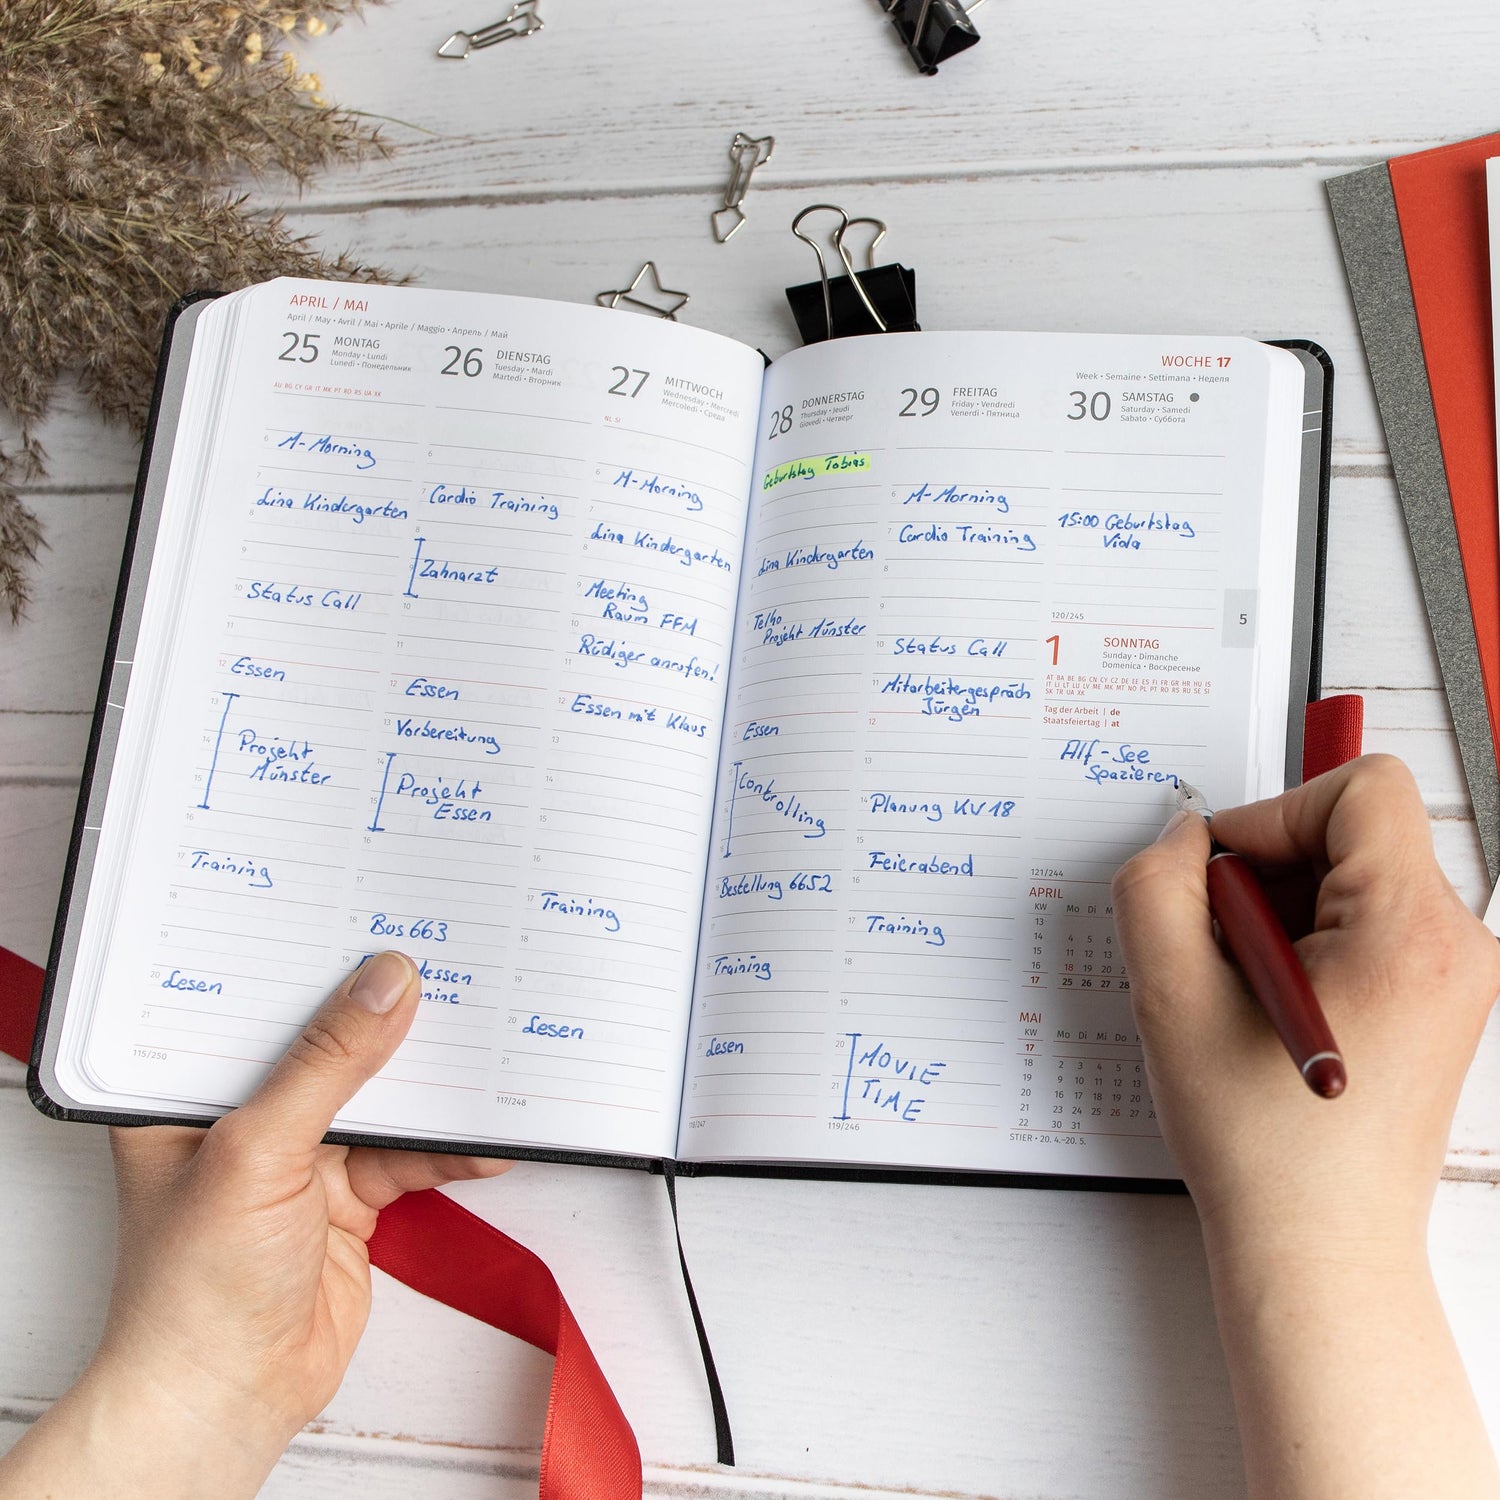 APRIL / MAI
April / May • Avril / Mai • Aprile / Maggio • Апрель / Май
25 MONTAG
Monday • Lundi
Lunedì • Понедельник
AU BG CY GR IT MK PT RO RS UA XK
6
M-Morning
7
Lina Kindergarten
8
9
10 Status Call
11
12 Essen
13
14 Projekt
Münster
15
16
17 Training
18
19
20 Lesen
21
115/250
26 DIENSTAG
Tuesday • Mardi
Martedì • Вторник
6
7 Cardio Training
8
9 Zahnarzt
10
11
12 Essen
13 Vorbereitung
14
Projekt
15 Essen
16
17
18 Bus 663
19
27 MITTWOCH
Wednesday • Mercredi
Mercoledì • Среда
NL SI
6
M-Morning
7
Lina Kindergarten
8
9 Meeting
Raum FFM
10
Rüdiger anrufen!
11
12 Essen mit Klaus
13
14
15
16
17 Training
18
19
20 Lesen
21
117/248
WOCHE 17
Week • Semaine • Settimana • Неделя
28 DONNERSTAG
Thursday • Jeudi
Giovedì • Четверг
Geburtstag Tobias
Lina Kindergarten
Telko
Projekt Münster
Essen
Controlling
Bestellung 6652
Training
Lesen
29 FREITAG
Friday • Vendredi
Venerdì • Пятница
6 M-Morning
7 Cardio Training
8
9
10 Status Call
11 Mitarbeitergespräch
Jürgen
12
13
14 Planung KV 18
15 Feierabend
16
17 Training
18
19
20 MOVIE
21 TIME
119/246
30 SAMSTAG
Saturday • Samedi
Sabato • Суббота
15:00 Geburtstag
Viola
120/245
5
1 SONNTAG
Sunday • Dimanche
Domenica • Воскресенье
AT BA BE BG CN CY CZ DE EE ES FI FR GR HR HU IS
IT LI LT LU LV ME MK MT NO PL PT RO RS RU SE SI
SK TR UA XK
Tag der Arbeit | de
Staatsfeiertag | at
Alf-See
Spazieren
121/244
APRIL
KW Mo Di
13
14 4 5 6
15 11 12 13
16 18 19 20
17 25 26 27 28
MAI
KW Mo Di Mi Do
17
18 2 3 4 5
19 9 10 11 12
20 16 17 18 19
21 23 24 25 26
22 30 31
STIER • 20. 4.–20. 5.